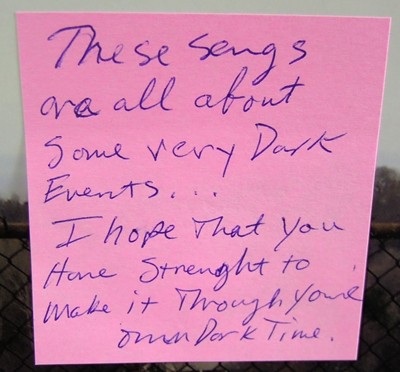 These songs
are all about
Some very Dark
Events...
I hope That you
Have Strenght to
Make it Through your
own Dark Time.